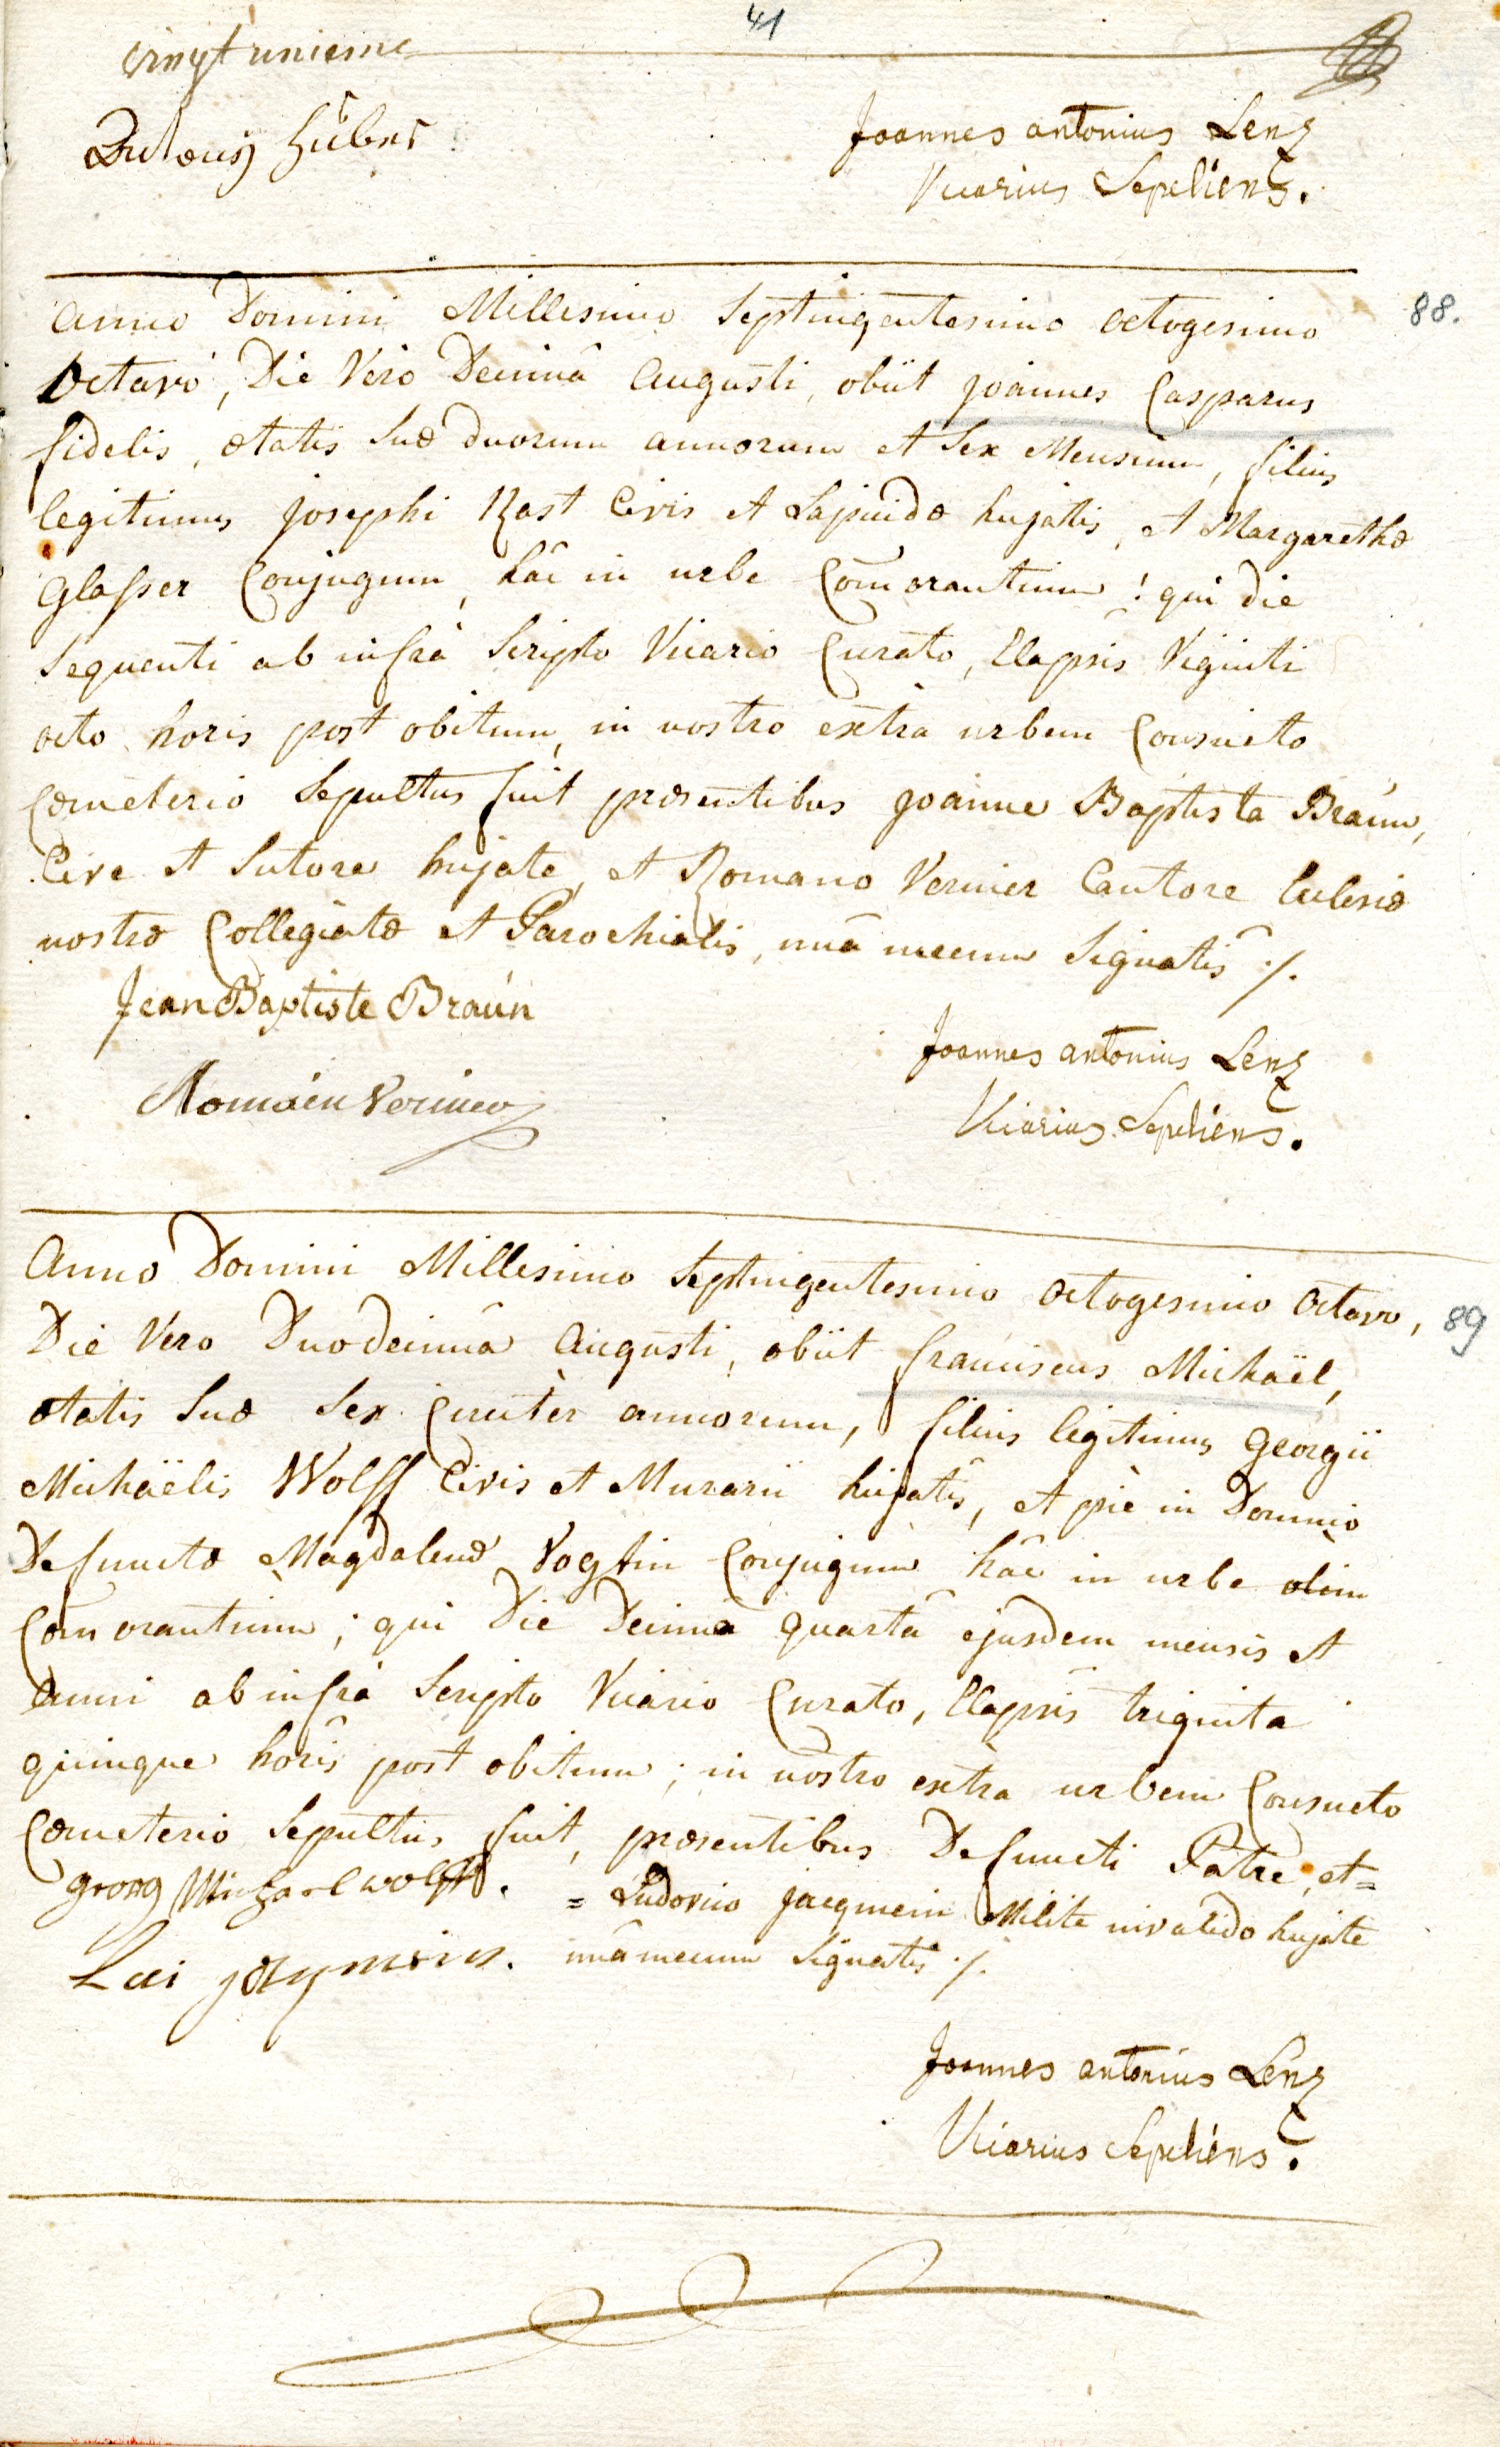 41
vingt unieme
Antonÿ Hüber
Joannes antonius Lenz
Vicarius Sepeliens.
Anno Domini Millesimo Septingentesimo octogesimo
88.
Octavo, Die Vero Decimâ Augusti, obiit joannes Casparus
fidelis, ætatis suæ duorum annorum et sex Mensium, filius
legitimus josephi Rast Civis et Lapicidæ hujatis, et Margarethæ
Glasser Conjugum, hâc in urbe Com̃orantium! qui die
sequenti ab infrà Scripto Vicario Curato, Elapsis Viginti
octo horis post obitum, in nostro extra urbem Consueto
Cœmeterio Sepultus fuit præsentibus joanne Baptista Braun,
Cive et Sutore hujate, et Romano Vernier Cantore Ecclesiæ
nostræ Collegiatæ et Parochialis, unà mecum Signatis ./.
Jean Baptiste Braún
Joannes antonius Lenz
Romain Vernier
Vicarius Sepeliens.
Anno Domini Millesimo Septingentesimo octogesimo octavo,
89
Die Vero Duodecimâ Augusti, obiit franciscus Michaël,
ætatis Suæ Sex Circitèr annorum, filius legitimus Georgii
Michaëlis Wolff Civis et Murarii hujatis, et piè in Domino
Defunctæ Magdalenæ Vogtin Conjugum hâc in urbe olim
Com̃orantium; qui Die Decimâ quartâ ejusdem mensis et
anni ab infrà Scripto Vicario Curato, Elapsis triginta
quinque horis post obitum; in nostro extra urbem Consueto
Cœmeterio Sepultus fuit, præsentibus Defuncti Patre, et=
georg Michael wolff.
= Ludovico jacquemin Milite invalido hujate
unâ mecum Signatis ./.
Joannes antonius Lenz
Vicarius Sepeliens.